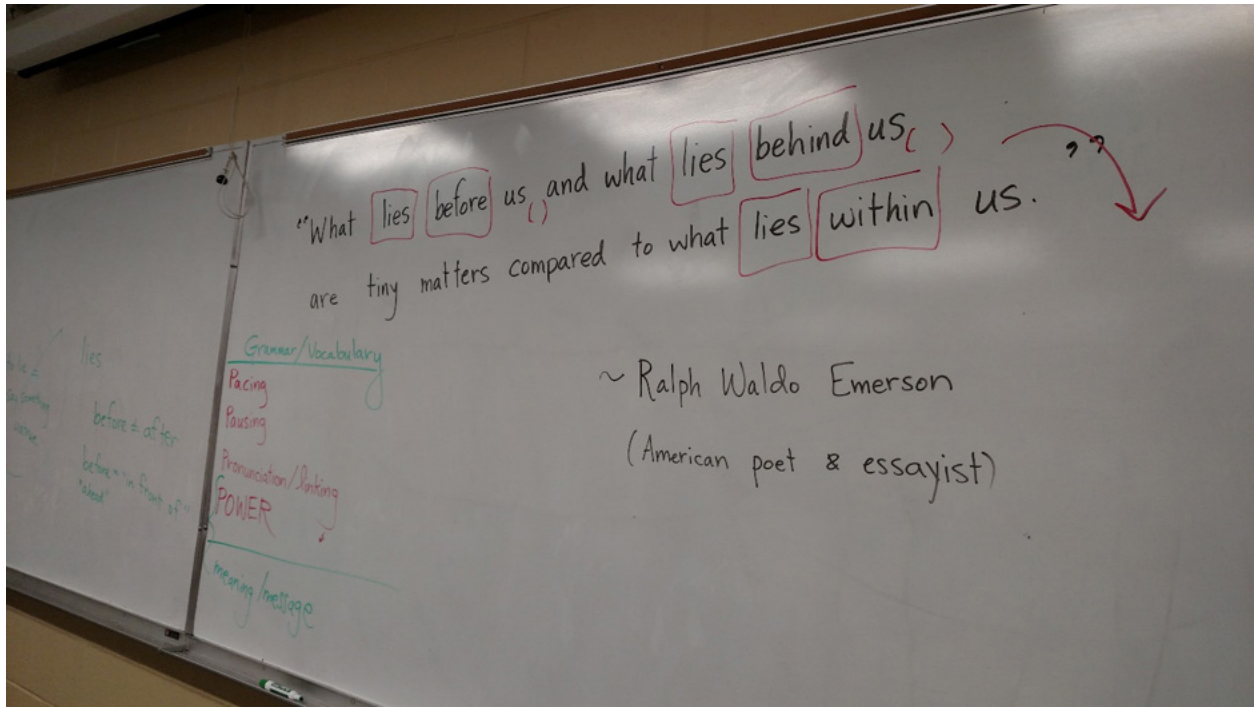 "What lies before us, ( ) and what lies behind us, ( )
are tiny matters compared to what lies within us."
~ Ralph Waldo Emerson
(American poet & essayist)
Grammar/Vocabulary
Pacing
Pausing
Pronunciation/linking
POWER
meaning/message
lies
before ≠ after
before = "in front of"
"ahead"
to lie =
say something
untrue